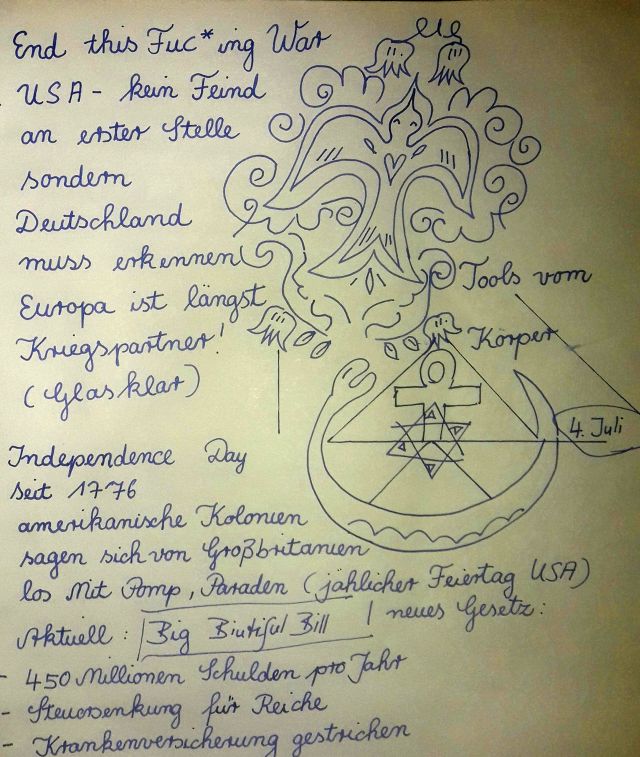 End this Fuc*ing War
USA - kein Feind
an erster Stelle
sondern
Deutschland
muss erkennen
Europa ist längst
Kriegspartner!
(Glasklar)
Tools vom
Körper
4. Juli
Independence Day
seit 1776
amerikanische Kolonien
sagen sich von Großbritanien
los Mit Pomp, Paraden (jählicher Feiertag USA)
Aktuell: Big Biutiful Bill neues Gesetz:
- 450 Millionen Schulden pro Jahr
- Steuersenkung für Reiche
- Krankenversicherung gestrichen